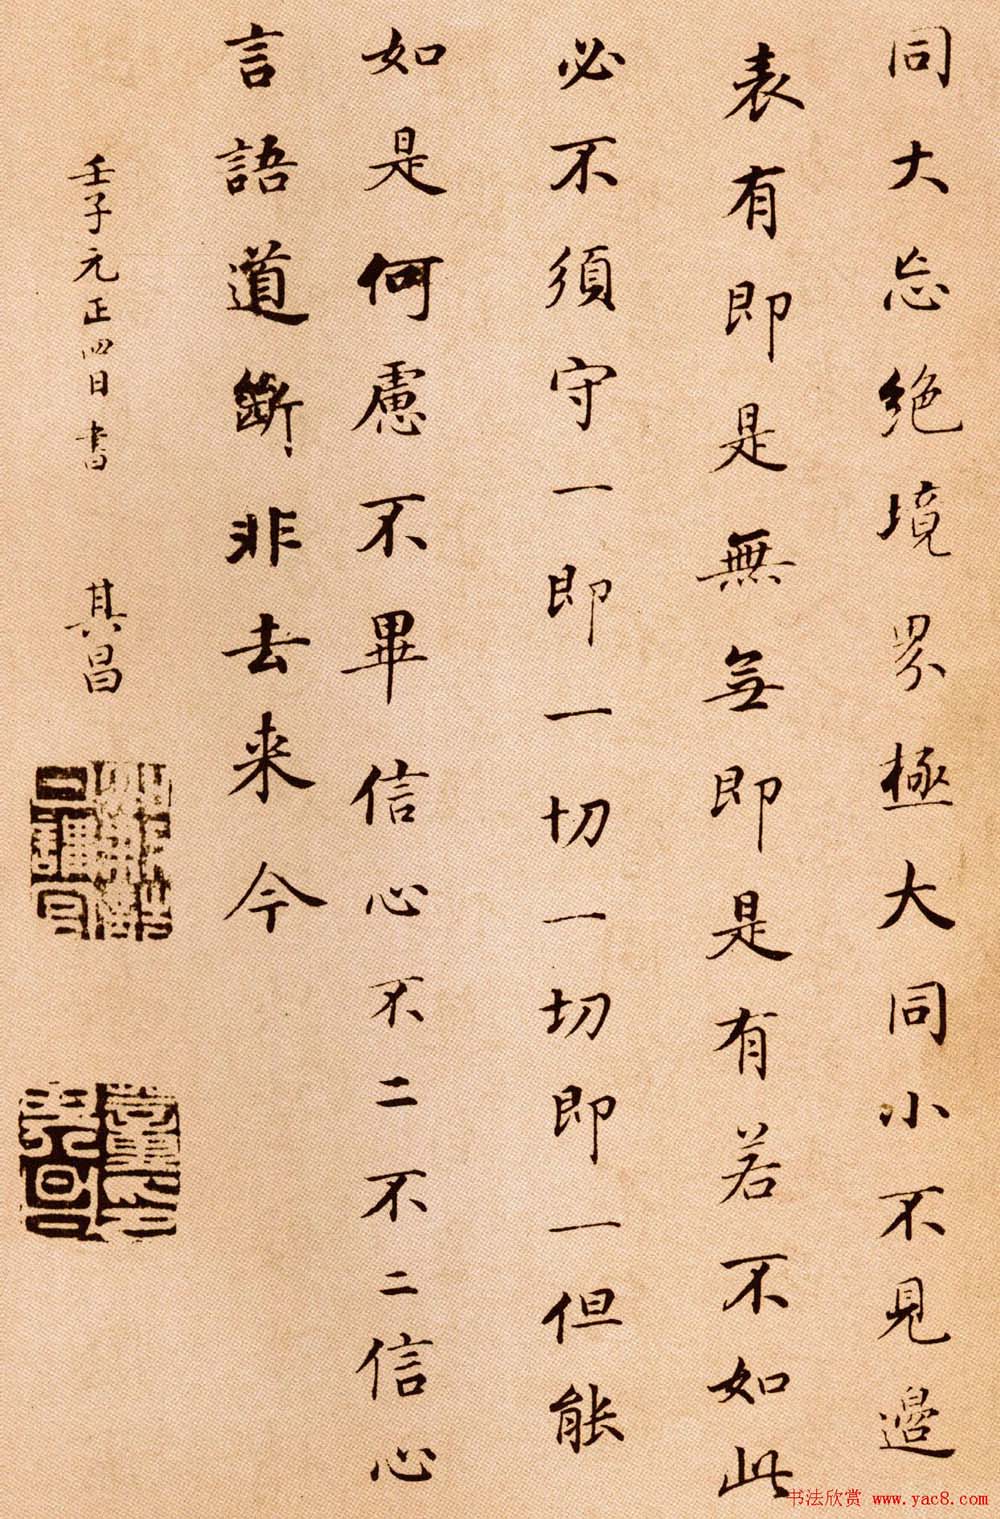 同大忘绝境界極大同小不見邊
表有即是無無即是有若不如此
必不須守一即一切一切即一但能
如是何慮不畢信心不二不二信心
言語道斷非去来今
壬子元正四日書 其昌
知制誥日講官
书法欣赏 www.yac8.com